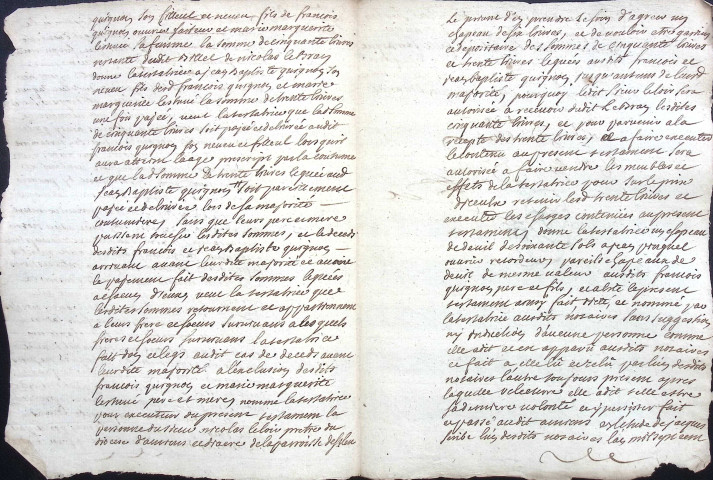 quignon son filleul et neveu fils de françois
quignon ouvrier faiteur et marie marguerite
lestuué sa femme la somme de cinquante livres
restante dudit billet de nicolas le bron
donne la testatrice a jean Baptiste quignon son
neveu fils dud françois quignon et marie
marguerite lestuué la somme de trente livres
une fois payée, veut la testatrice que la somme
de cinquante livres soit payée et delivrée audit
françois quignon son neveu et filleul lorsquil
aura atteint laage prescript par la coutume
et que lad somme de trente livres leguée aud
jean Baptiste quignon soit pareillement
payée et delivrée lors de sa majorité
coutumiere, sans que leurs pere et mere
puissent toucher lesdites sommes, et le deceds
desdits françois et jean Baptiste quignon
arrivant avant leurdite majorité et avant
le payement fait desdites sommes leguées
a chacun d'eux, veut la testatrice que
lesdites sommes retournent et appartiennent
a leurs frere et soeurs survivans a lesquels
frere et soeurs survivans la testatrice
fait don et legs audit cas de deceds avant
leurdite majorité a lexclusion desdits
françois quignon et marie marguerite
lestuué pere et mere, nomme la testatrice
pour executeur du present testament la
personne du sieur nicolas lelois pretre du
diocese d'amiens et diacre de la paroisse de st leu
le prians d'en prendre le soin d'agréer un
chapeau de six livres, et de vouloir etre gardien
et depositaire des sommes de cinquante livres
et trente livres leguées ausdits françois et
jean Baptiste quignon, jusqu'au tems de leurd
majorité, pourquoy ledit sieur lelois sera
autorisé a recevoir dudit le bron lesdites
cinquante livres, et pour parvenir a la
recepte des trente livres, et a faire executer
le contenu au present testament sera
autorisé a faire vendre les meubles et
effets de la testatrice pour sur le prix
d'iceux retenir lesd trente livres et
executer les charges contenües au present
testament, donne la testatrice un chapeau
de deuil de soixante sols a jean
marié retordeur, pareils chapeaux de
deuil de mesme valeur ausdits françois
quignon pere et fils, et a eté le present
testament ainsy fait dicté, et nommé par
la testatrice ausdits notaires sans suggestion
ny induction d'aucune personne comme
elle a dit et en apparû ausdits notaires
ce fait a elle lû et relû par lun desdits
notaires lautre toujours present apres
laquelle lecture elle a dit telle estre
sa derniere volonté et y persister fait
et passé audit amiens en letude de jacques
scribe lun desdits notaires lan mil sept cent